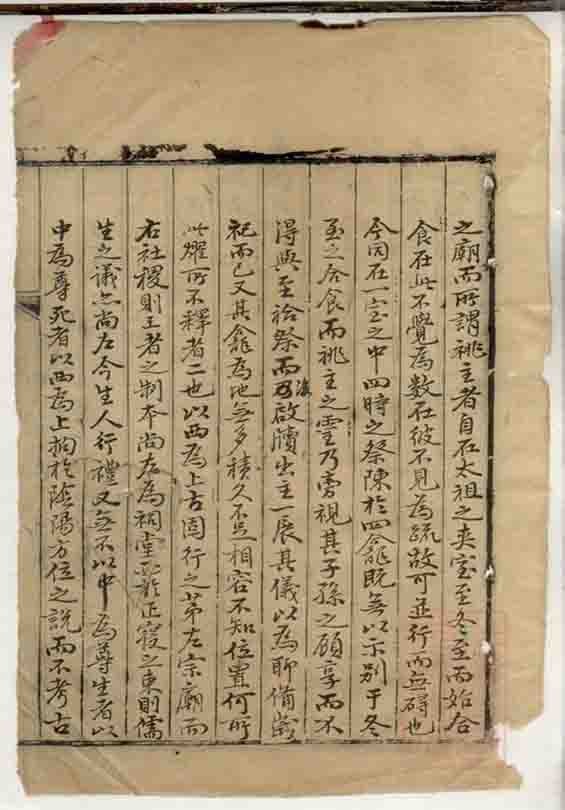 之廟而所謂祧主者自在太祖之夾室至冬至而始合
食在此不覺為数在彼不見為疏故可並行而無碍也
今因在一室之中四時之祭陳於四龕既無以示别于冬
至之合食而祧主之靈乃旁視其子孫之顧享而不
得與至祫祭而乃啟牘出主一展其儀以為聊備嵗
祀而已又其龕為地無多積久不足相容不知位置何所
此燿所不釋者二也以西為上古固行之第左宗廟而
右社稷則王者之制本尚左為祠堂必於正寢之東則儒
生之議亦尚左今生人行禮又無不以中為尊生者以
中為尊死者以西為上拘於陰陽方位之說而不考古